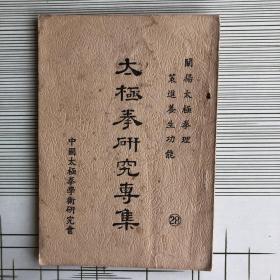 闡揚太極拳理
策進養生功能
㉘
太極拳研究專集
中國太極拳學術研究會